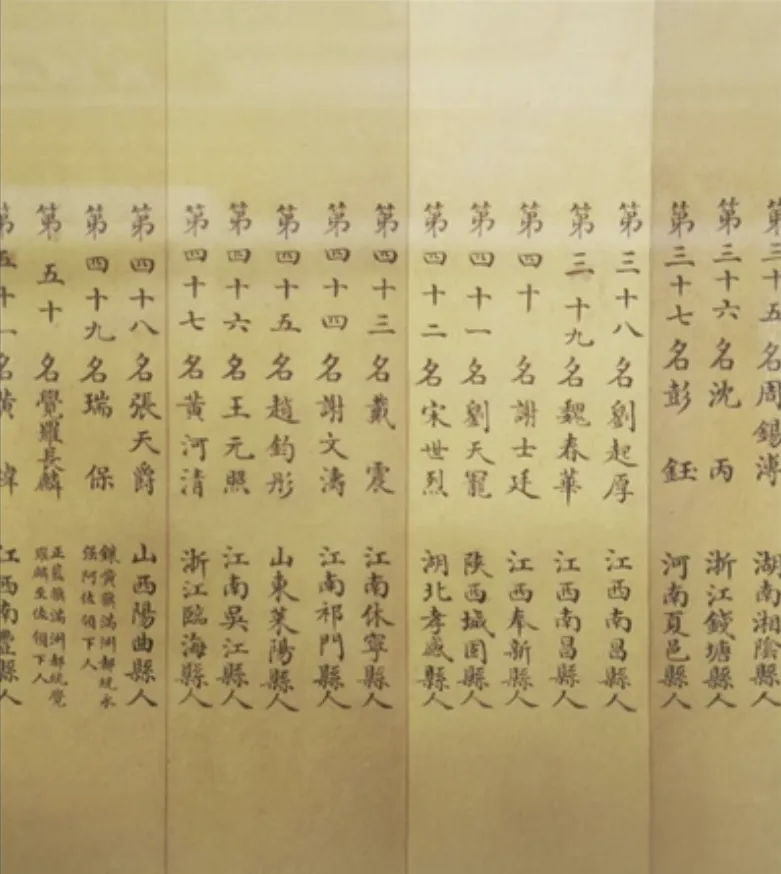 第三十五名周錫溥 湖南湘陰縣人
第三十六名沈丙 浙江錢塘縣人
第三十七名彭鈺 河南夏邑縣人
第三十八名劉起厚 江西南昌縣人
第三十九名魏春華 江西南昌縣人
第四十名謝士廷 江西奉新縣人
第四十一名劉天寵 陝西城固縣人
第四十二名宋世烈 湖北孝感縣人
第四十三名戴震 江南休寧縣人
第四十四名謝文濤 江南祁門縣人
第四十五名趙鈞彤 山東萊陽縣人
第四十六名王元照 江南吳江縣人
第四十七名黃河清 浙江臨海縣人
第四十八名張天爵 山西陽曲縣人
第四十九名瑞保 鑲黃旗滿洲都統永
強阿佐領下人
第五十名覺羅長麟 正藍旗滿洲都統覺
羅麟坐佐領下人
第五十一名黃 江西南豐縣人